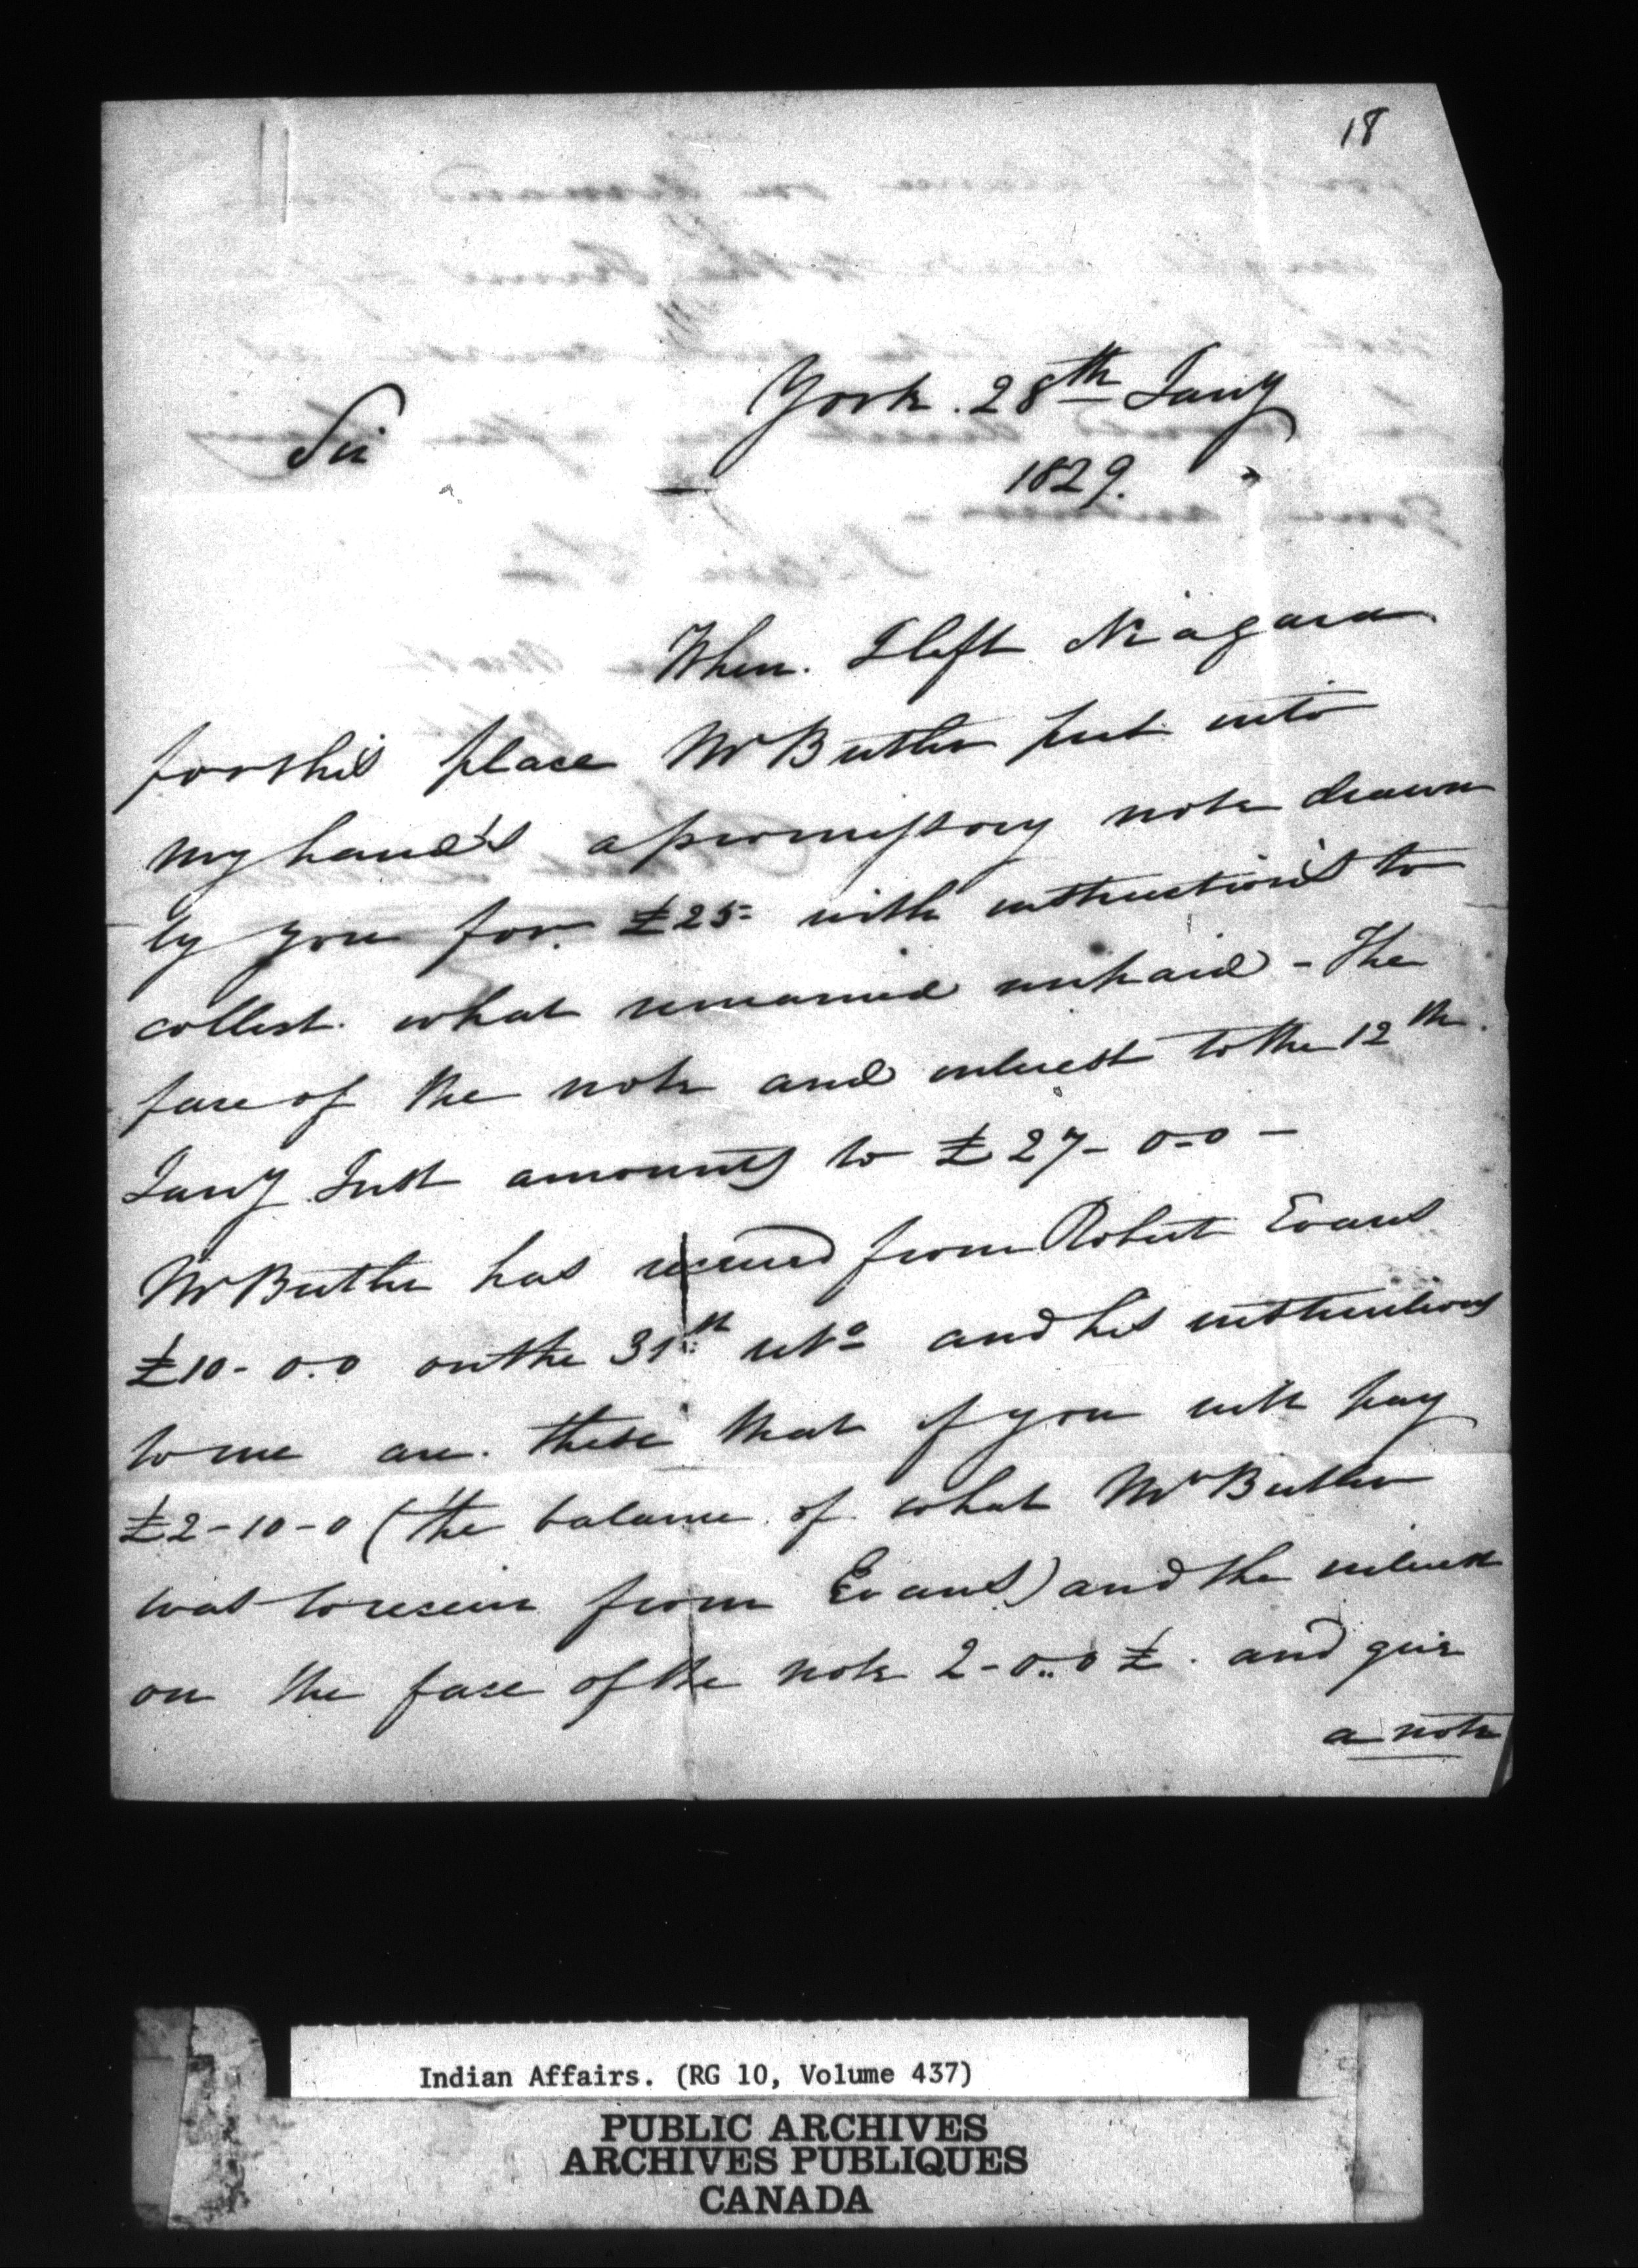 18
York. 28th Jany
Sir
1829.
When. I left Niagara
for this place Mr Butler put into
my hands a promissory note drawn
by you for £25 with instructions to
collect. what remained unpaid - The
face of the note and interest to the 12th.
Jany Inst amounts to £27-0-0-
Mr Butler has received from Robert Evans
£10-0.0 on the 31st ulto and his instructions
to me are. these that if you will pay
£2-10-0 (the balance of what Mr Butler
was to receive from Evans) and the interest
on the face of the note 2-0..0 £. and give
a note
Indian Affairs. (RG 10, Volume 437)
PUBLIC ARCHIVES
ARCHIVES PUBLIQUES
CANADA